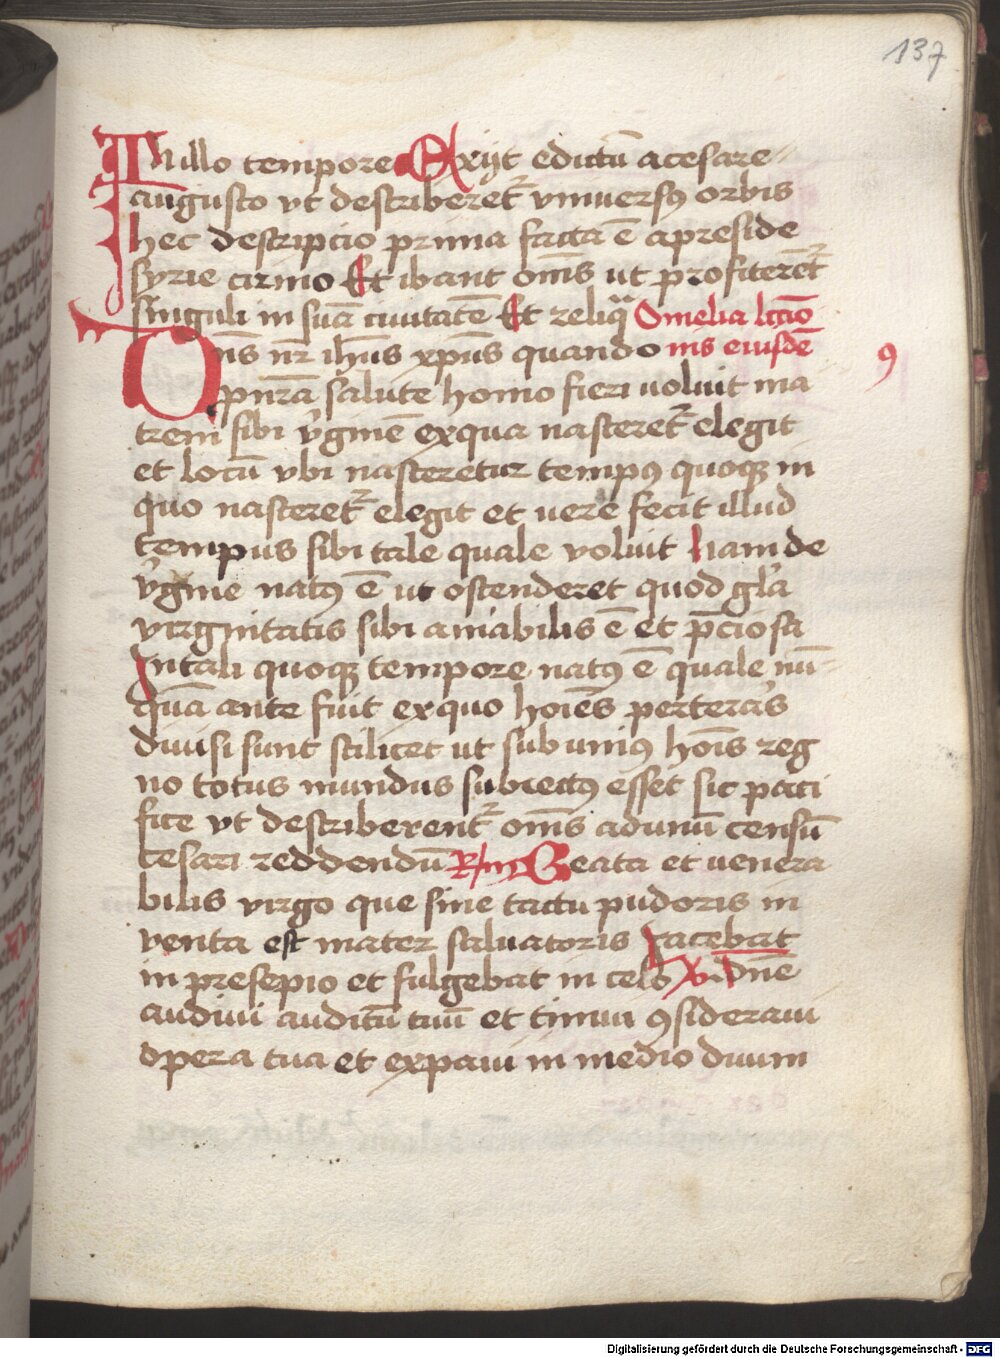 137
In illo tempore Exijt edictū a cesare
augusto vt describeret᷑ vniuersꝯ orbis
hec descriptio prima facta ē a preside
syrie cirino Et ibant om̄s ut profiteret᷑
singuli in suā ciuitatē Et reliqͣ Omelia lc̄io
Dn̄s nr̄ ih̄us xp̄us quando nis eiusdē
9
p nr̄a salute homo fieri uoluit ma
trem sibi v̓ginē ex qua nasceret᷑ elegit
et locū vbi nasceretur tempꝯ quoqꝫ in
quo nasceret᷑ elegit et uere fecit illud
tempus sibi tale quale voluit Nam de
v̓gine natꝯ ē ut ostenderet quod gl̓a
virginitatis sibi amabilis ē et p̄ciosa
In tali quoqꝫ tempore natꝯ ē quale nū
quā ante fuit ex quo hoīes per teras
diuisi sunt scilicet ut sub uniꝯ hoīs reg
no totus mundus subiectꝯ esset sic paci
fice vt describerent᷑ om̄s ad unū censū
cesari reddendū R/m Beata et uenera
bilis virgo que sine tactu pudoris in
venta est mater saluatoris Iacebat
in presepio et fulgebat in celis Vͥ Dn̄e
audiui auditū tuū et timui ꝯsideraui
opera tua et expaui in medio duum
Digitalisierung gefördert durch die Deutsche Forschungsgemeinschaft - DFG